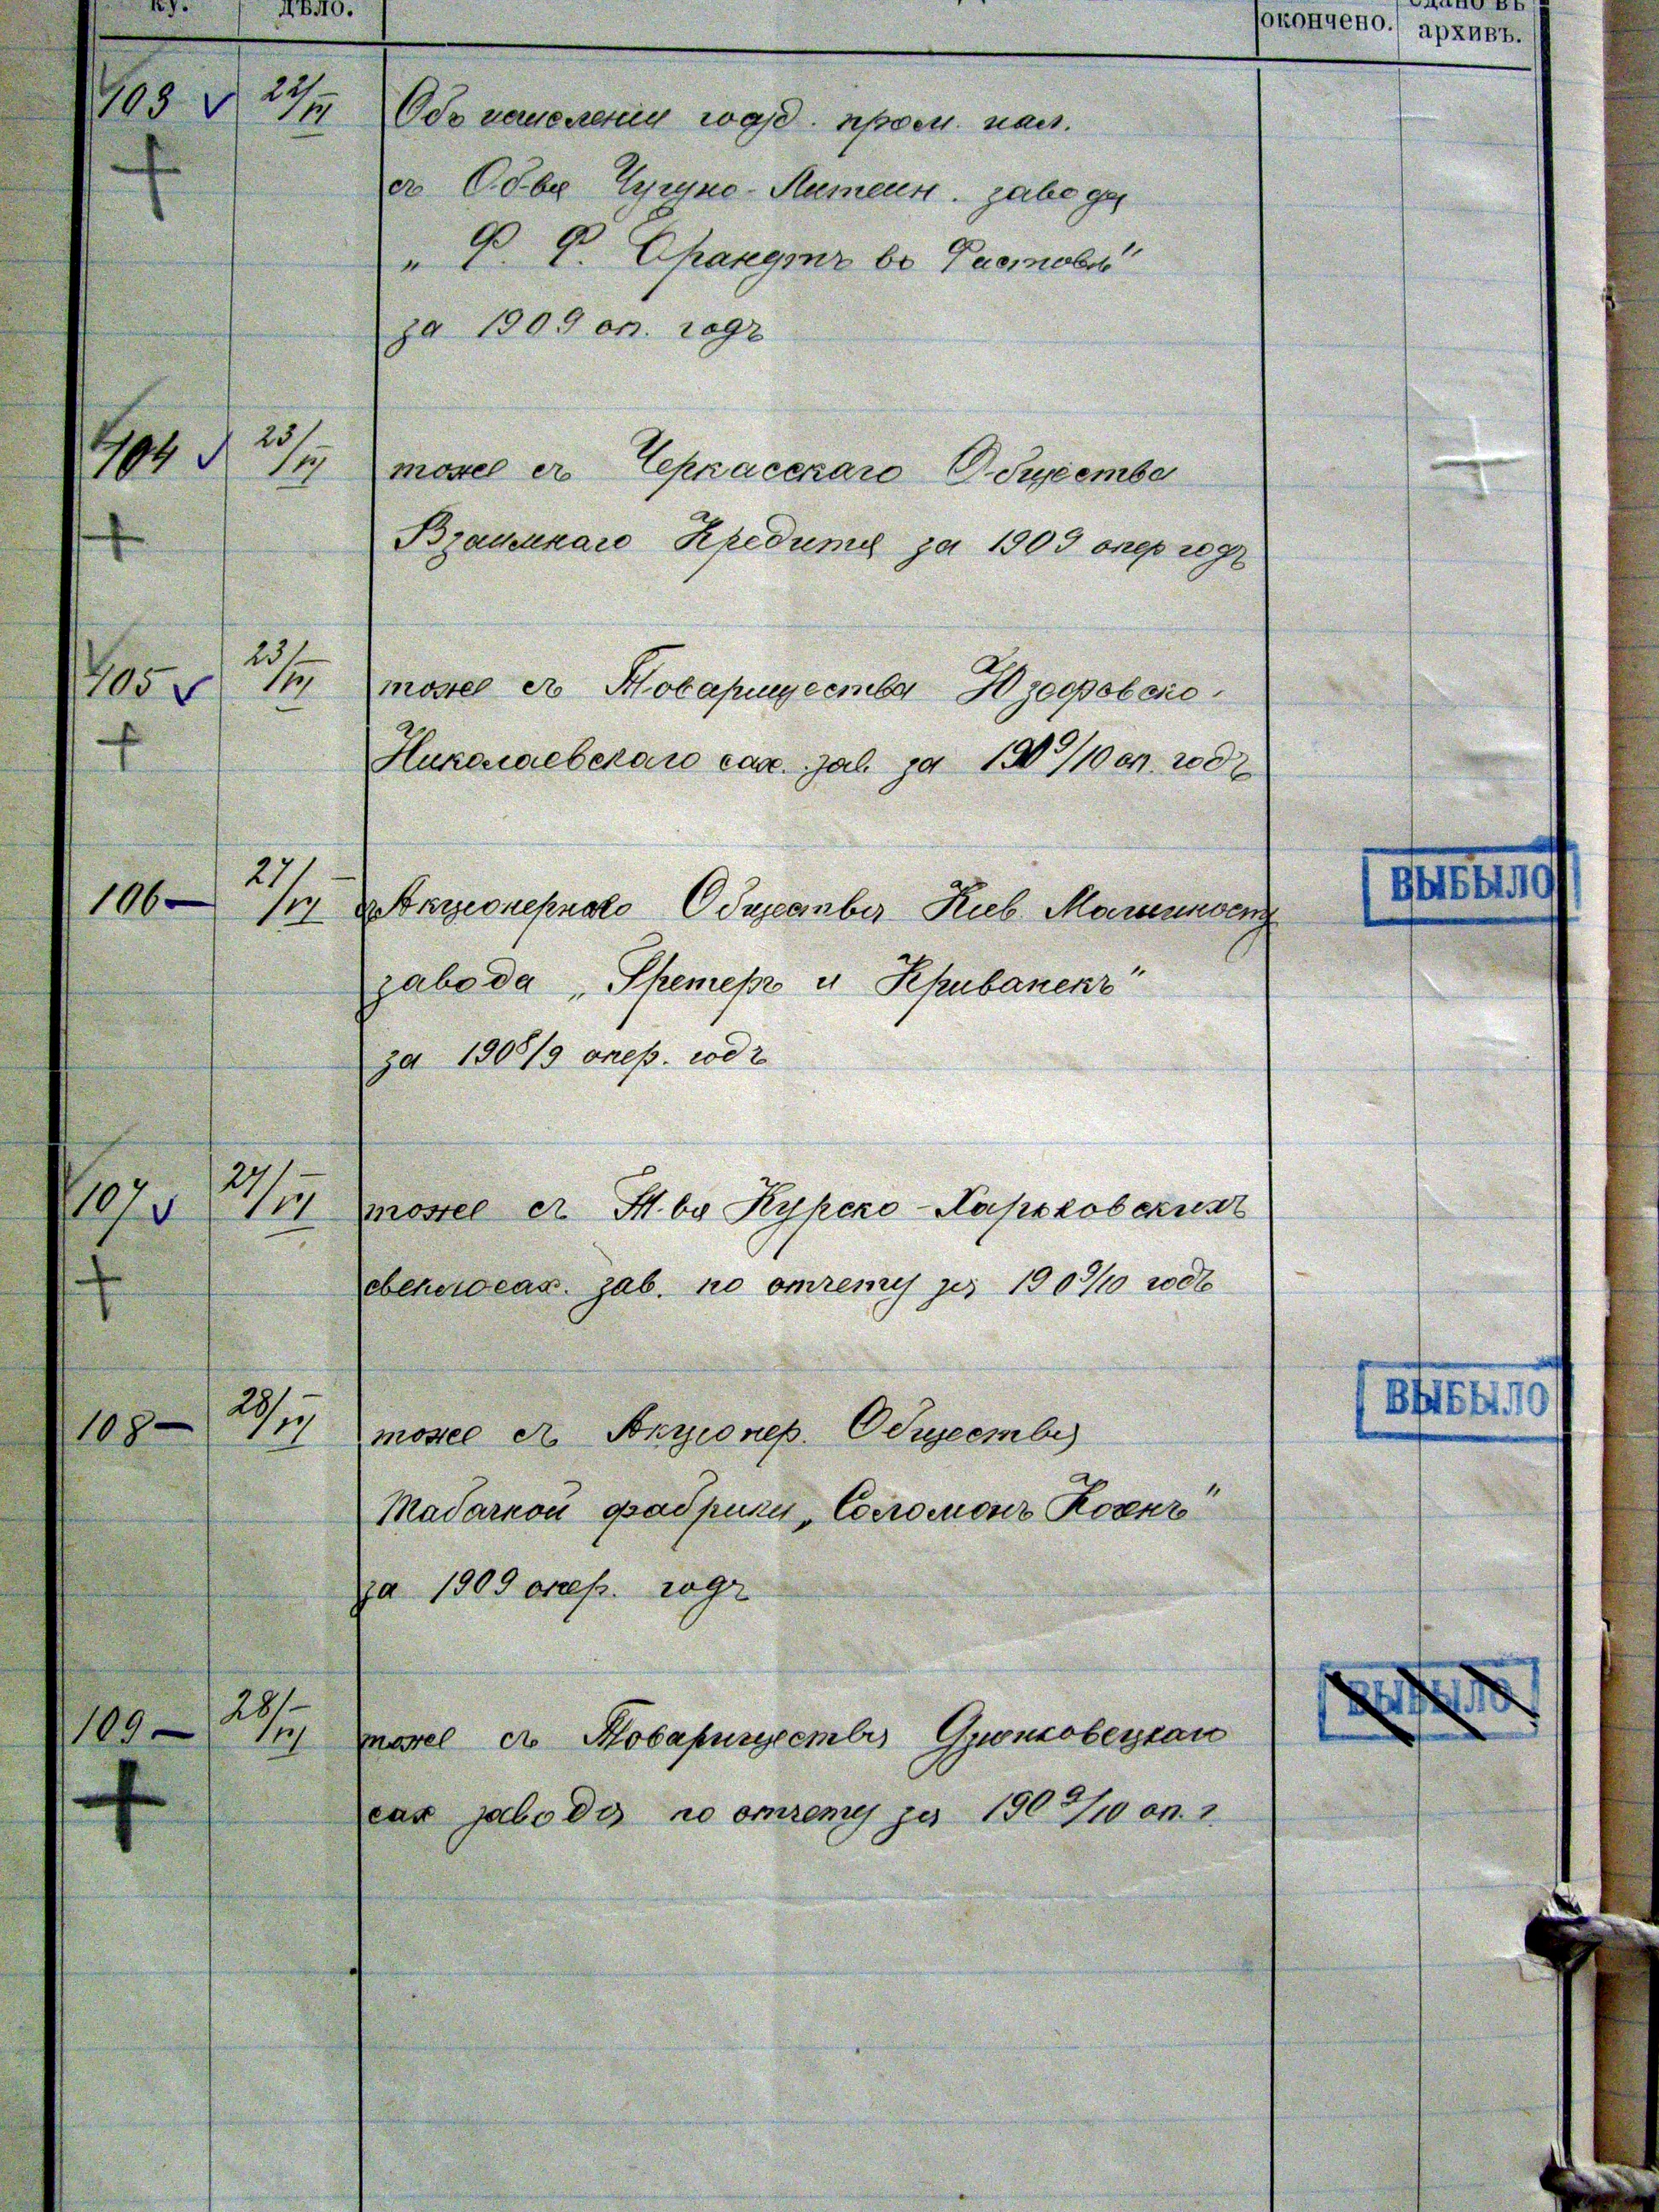 ку.
дѣло.
окончено.
сдано въ
архивъ.
103 22/VI Объ исчисленіи госуд. пром. нал.
съ Об-ва Чугуно-Литеин. завода
„Ф. Ф. Брандтъ въ Фастовѣ"
за 1909 оп. годъ
104 23/VI тоже съ Черкасскаго Общества
Взаимнаго Кредита за 1909 опер годъ
105 23/VI тоже съ Товарищества Юзефовско-
Николаевскаго сах. зав. за 1909/10 оп. годъ
106 – 27/VI съ Акціонернаго Общества Кіев. Машиност
ВЫБЫЛО
завода „Гретеръ и Криванекъ"
за 1908/9 опер. годъ
107 27/VI тоже съ Т-ва Курско-Харьковскихъ
свеклосах. зав. по отчету за 1909/10 годъ
108 – 28/VI тоже съ Акціонер. Общества
ВЫБЫЛО
Табачной фабрики „Соломонъ Коэнъ"
за 1909 опер. годъ
109 – 28/VI тоже съ Товарищества Дзюнковецкаго
ВЫБЫЛО
сах завода по отчету за 1909/10 оп. г.